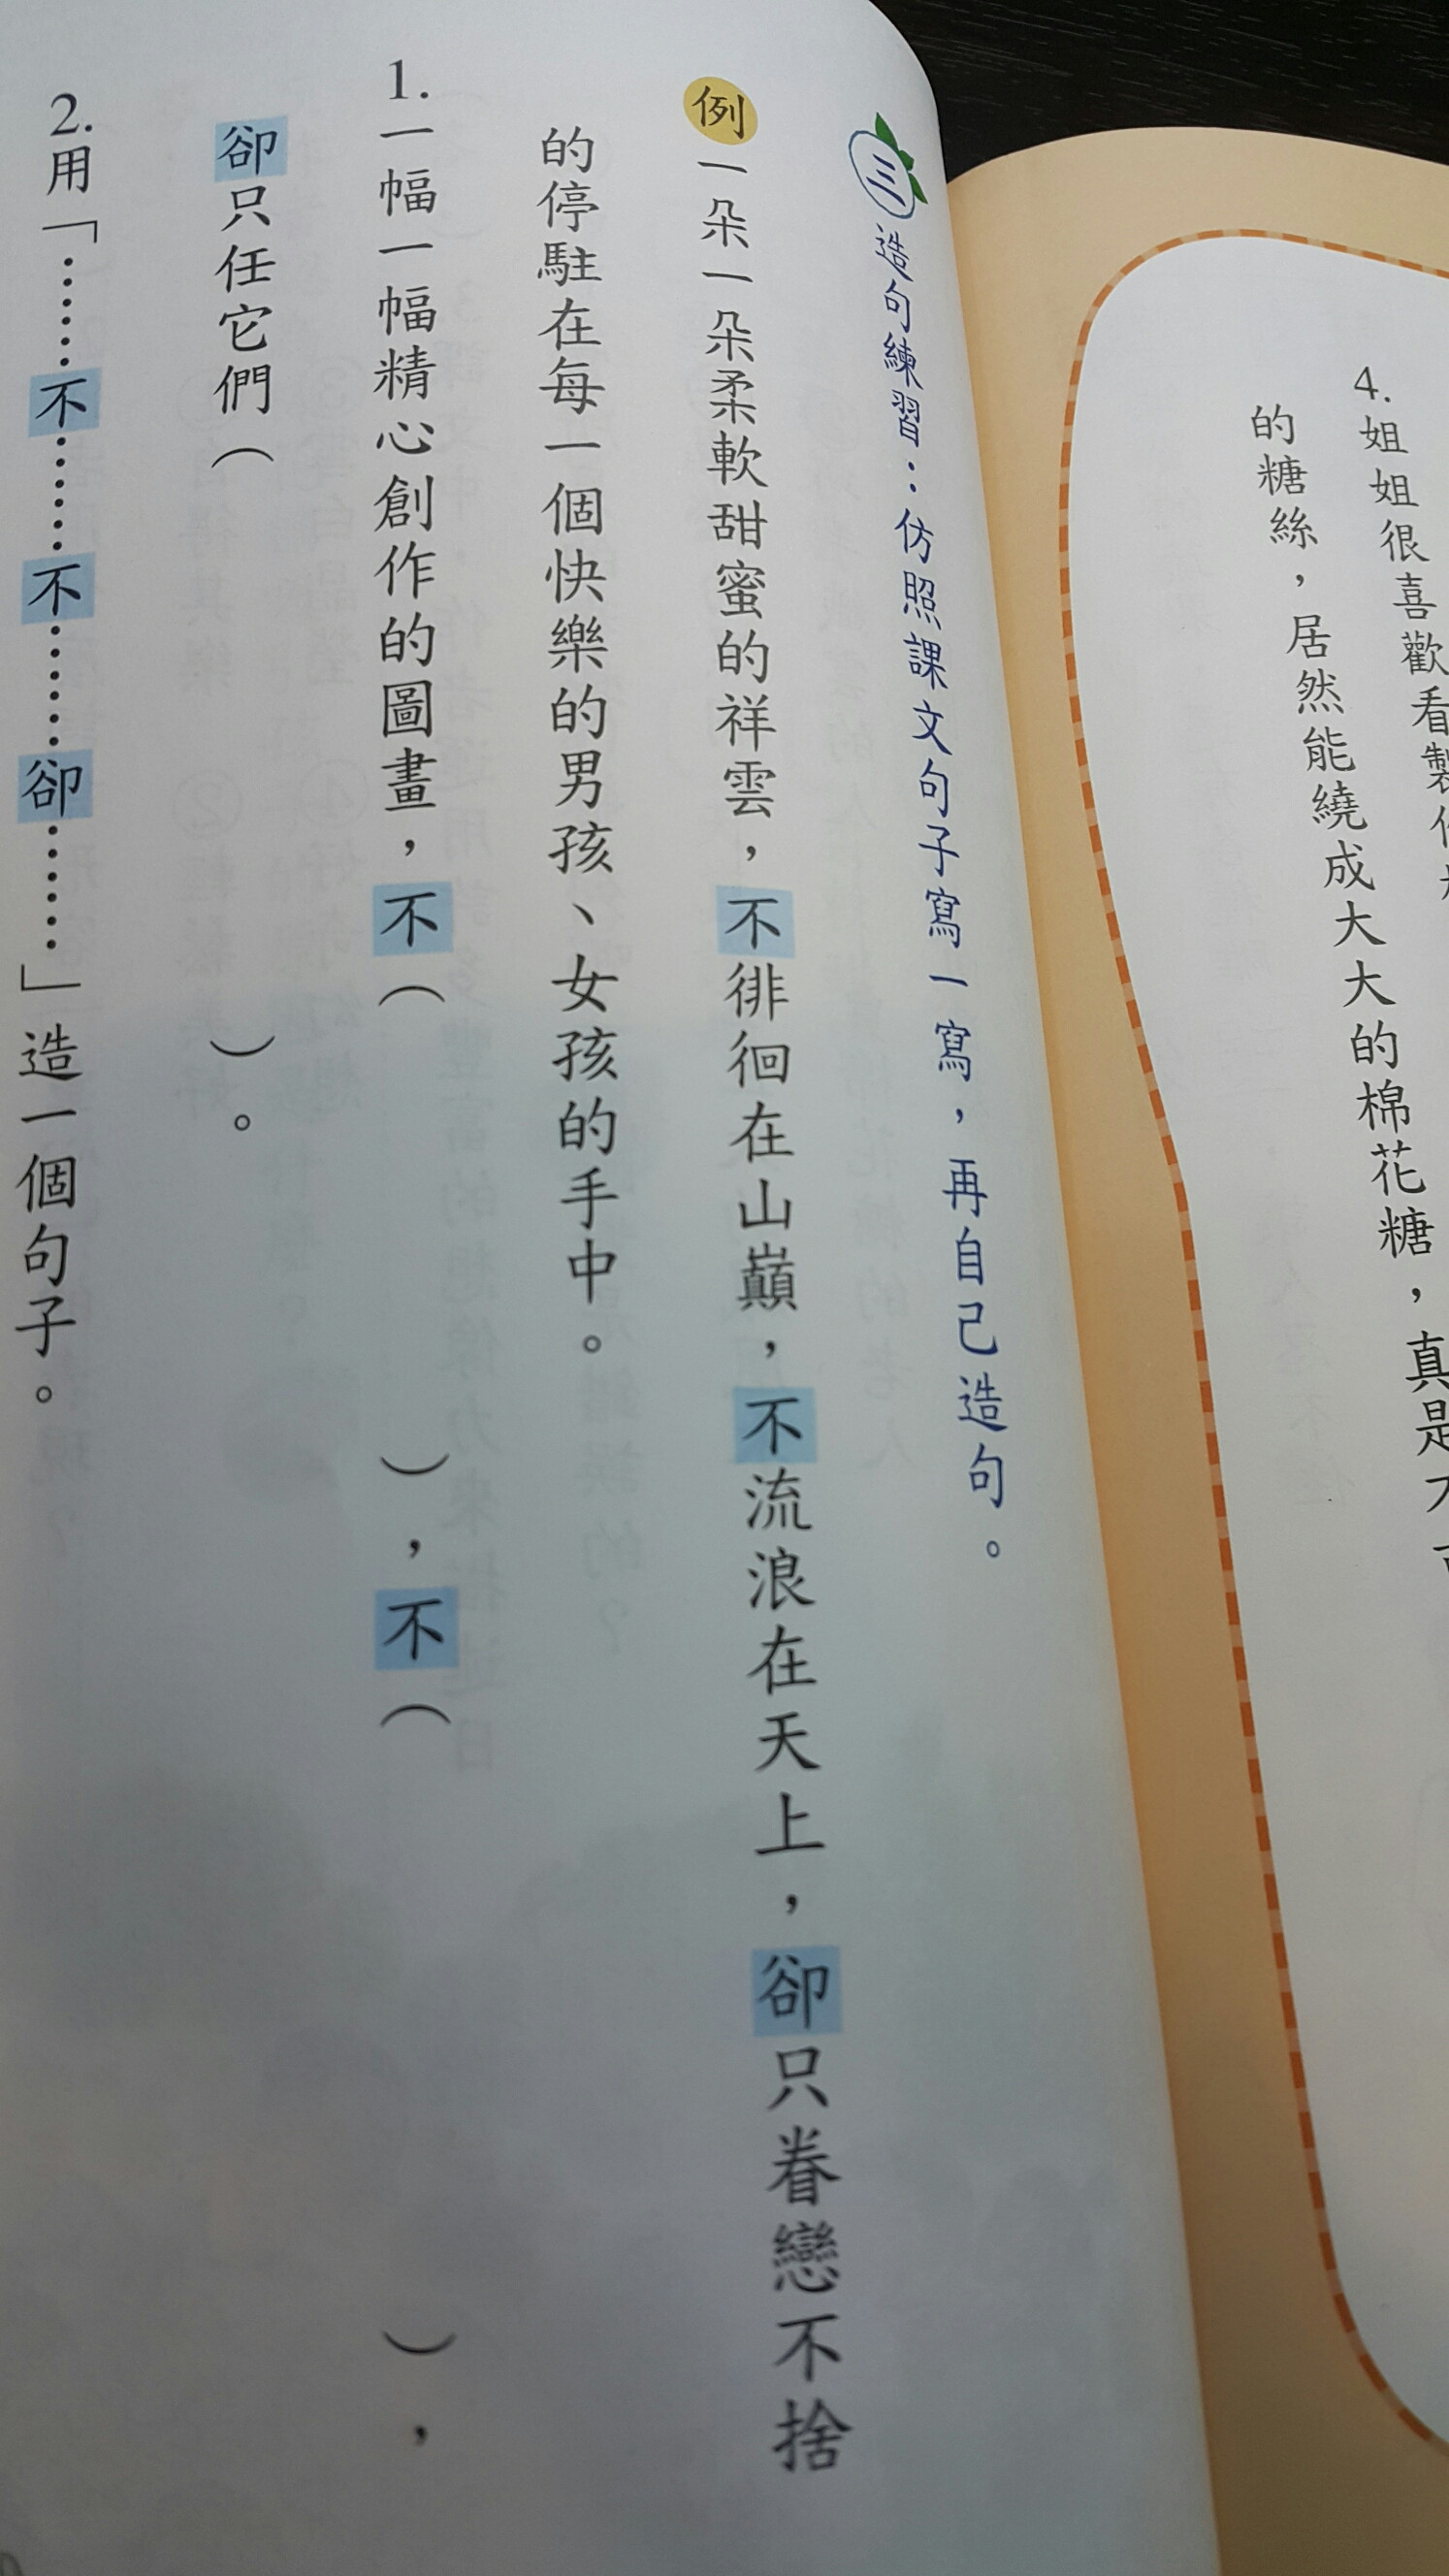 4.姐姐很喜歡看製作
的糖絲，居然能繞成大大的棉花糖，真是不
三造句練習：仿照課文句子寫一寫，再自己造句。
例一朵一朵柔軟甜蜜的祥雲，不徘徊在山巔，不流浪在天上，卻只眷戀不捨
的停駐在每一個快樂的男孩、女孩的手中。
1.一幅一幅精心創作的圖畫，不（　　　），不（　　　），
卻只任它們（　　　）。
2.用「……不……不……卻……」造一個句子。